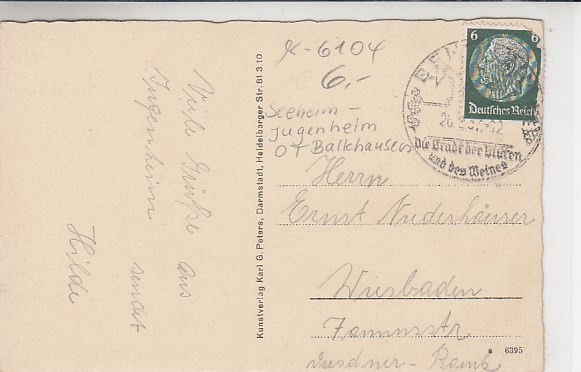 Viele Grüße aus
Jugenheim sendet
Hilde
Kunstverlag Karl G. Peters, Darmstadt, Heidelbarger Str. 81 3 10
x-6104
6,-
Seeheim-
Jugenheim
OT Balkhausen
6 6
Deutsches Reich
BEN
die Stadt der Blüten
und des Weines
Herrn
Ernst Niederhäuser
Wiesbaden
Taunusstr
Dresdner-Bank
6395